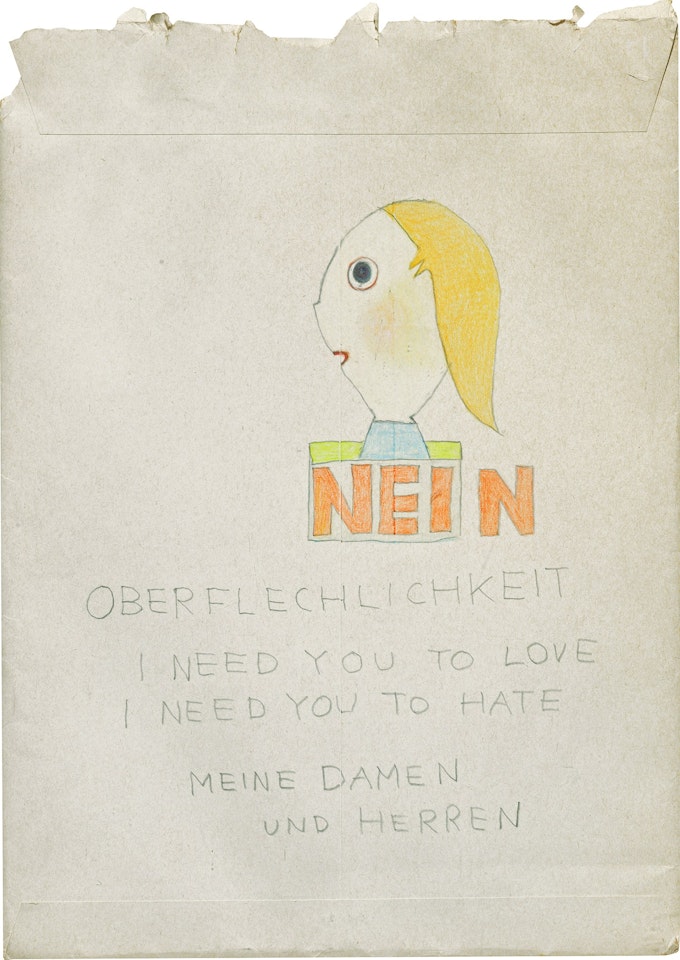 NEIN
OBERFLECHLICHKEIT
I NEED YOU TO LOVE
I NEED YOU TO HATE
MEINE DAMEN
UND HERREN